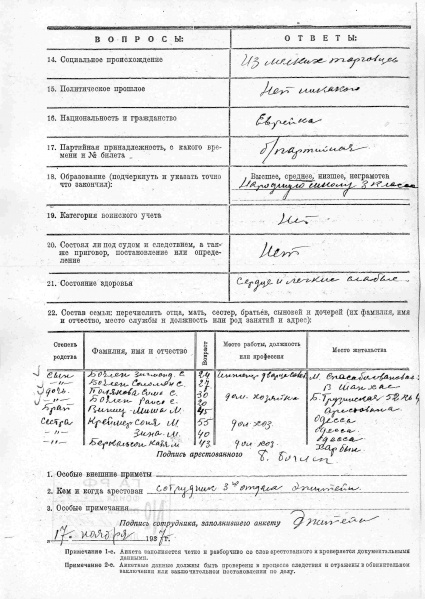 ВОПРОСЫ: ОТВЕТЫ:
14. Социальное происхождение Из мелких торговцев
15. Политическое прошлое Нет никакого
16. Национальность и гражданство Еврейка
17. Партийная принадлежность, с какого времени и № билета б/партийная
18. Образование (подчеркнуть и указать точно что закончил): Высшее, среднее, низшее, неграмотен
Народную школу 3 класса
19. Категория воинского учета Нет
20. Состоял ли под судом и следствием, а также приговор, постановление или определение Нет
21. Состояние здоровья Сердце и легкие слабые
22. Состав семьи: перечислить отца, мать, сестер, братьев, сыновей и дочерей (их фамилия, имя
и отчество, место службы и должность или род занятий и адрес):
Степень родства Фамилия, имя и отчество Возраст Место работы, должность или профессия Место жительства
сын С. 24 инженер
-"- С. 27 В Шанхае
дочь 30 дом. хозяйка Б. Грузинская
-"- С. 20
Брат Миша М. 45 Арестован
Сестра Соня М 55 дом. хоз. Одесса
-"- Зина М. 40 Одесса
-"- М 43 дом. хоз. Харбин
Подпись арестованного
1. Особые внешние приметы
2. Кем и когда арестован сотрудник 3го отдела Эпштейн
3. Особые примечания
Подпись сотрудника, заполнившего анкету Эпштейн
"17" ноября 1937г.
Примечание 1-е. Анкета заполняется четко и разборчиво со слов арестованного и проверяется документальными
данными.
Примечание 2-е. Анкетные данные должны быть проверены в процессе следствия и отражены в обвинительном
заключении или заключительном постановлении по делу.